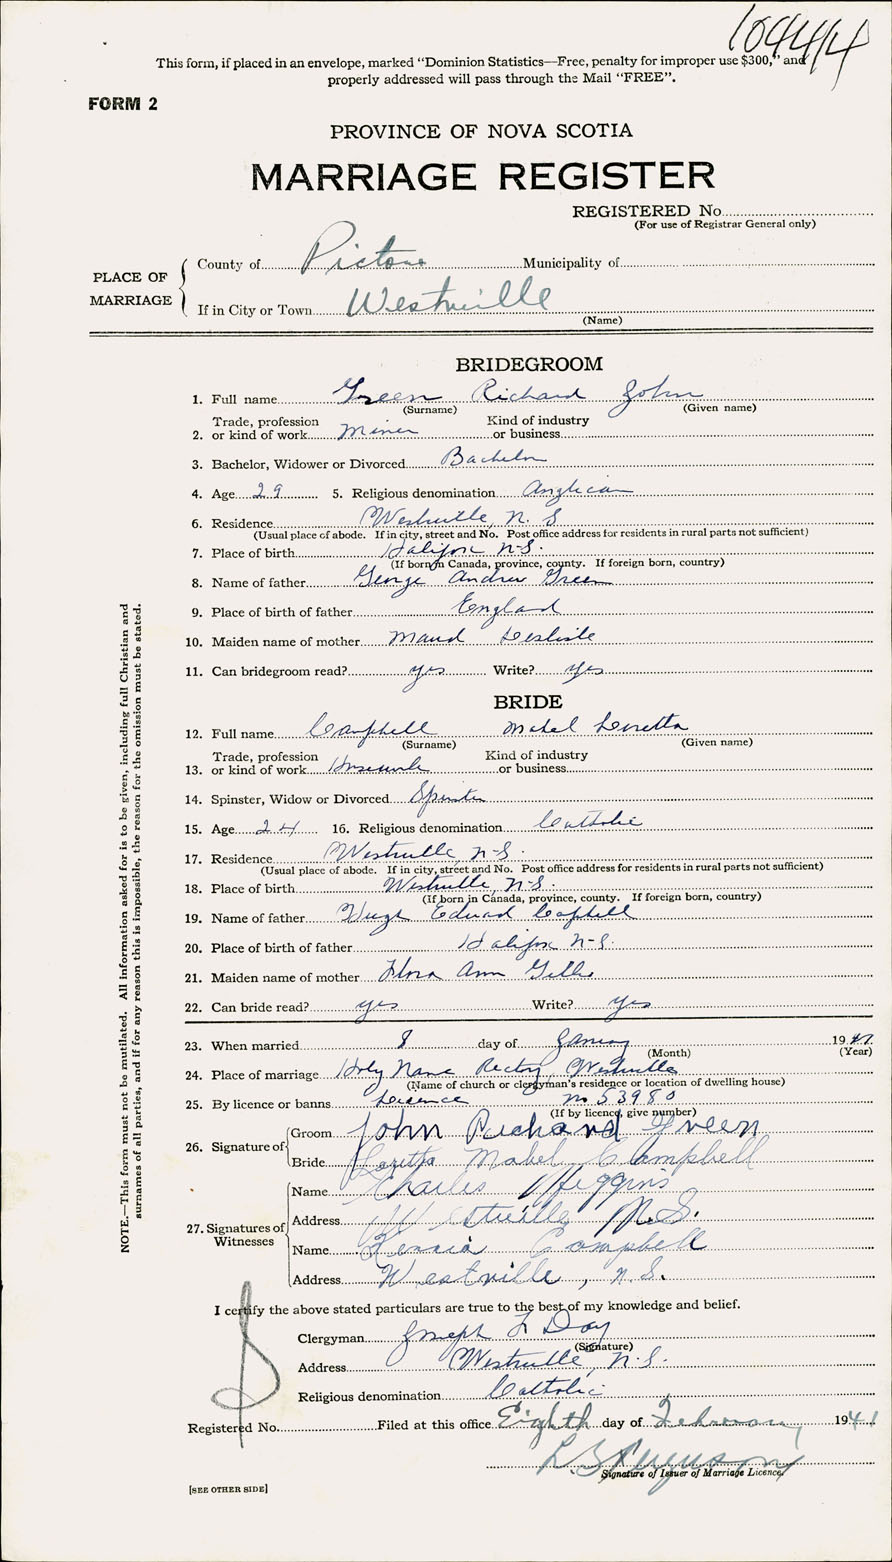 104414
This form, if placed in an envelope, marked "Dominion Statistics—Free, penalty for improper use $300," and
properly addressed will pass through the Mail "FREE".
FORM 2
PROVINCE OF NOVA SCOTIA
MARRIAGE REGISTER
REGISTERED No.
(For use of Registrar General only)
PLACE OF MARRIAGE
County of Pictou Municipality of
If in City or Town Westville
(Name)
BRIDEGROOM
1. Full name Green Richard John
(Surname) (Given name)
Trade, profession Kind of industry
2. or kind of work Miner or business
3. Bachelor, Widower or Divorced Bachelor
4. Age 29 5. Religious denomination Anglican
6. Residence Westville, N. S
(Usual place of abode. If in city, street and No. Post office address for residents in rural parts not sufficient)
7. Place of birth Halifax N-S.
(If born in Canada, province, county. If foreign born, country)
8. Name of father George Andrew Green
9. Place of birth of father England
10. Maiden name of mother Maud Leslie
11. Can bridegroom read? yes Write? yes
BRIDE
12. Full name Campbell Mabel Loretta
(Surname) (Given name)
Trade, profession Kind of industry
13. or kind of work Housework or business
14. Spinster, Widow or Divorced Spinster
15. Age 24 16. Religious denomination Catholic
17. Residence Westville, N-S.
(Usual place of abode. If in city, street and No. Post office address for residents in rural parts not sufficient)
18. Place of birth Westville, N-S.
(If born in Canada, province, county. If foreign born, country)
19. Name of father Hugh Edward Campbell
20. Place of birth of father Halifax N-S.
21. Maiden name of mother Flora Ann Gillis
22. Can bride read? yes Write? yes
23. When married 8 day of January 1941
(Month) (Year)
24. Place of marriage Holy Name Rectory, Westville
(Name of church or clergyman's residence or location of dwelling house)
25. By licence or banns Licence no 53980
(If by licence, give number)
26. Signature of
Groom John Richard Green
Bride Loretta Mabel Campbell
27. Signatures of Witnesses
Name Charles Higgins
Address Westville N.S.
Name Campbell
Address Westville, N.S.
I certify the above stated particulars are true to the best of my knowledge and belief.
Clergyman Joseph F Day
(Signature)
Address Westville, N.S.
Religious denomination Catholic
Registered No. Filed at this office Eighth day of February, 1941
L. B. Ferguson
Signature of Issuer of Marriage Licence
[SEE OTHER SIDE]
NOTE.—This form must not be mutilated. All Information asked for is to be given, including full Christian and
surnames of all parties, and if for any reason this is impossible, the reason for the omission must be stated.